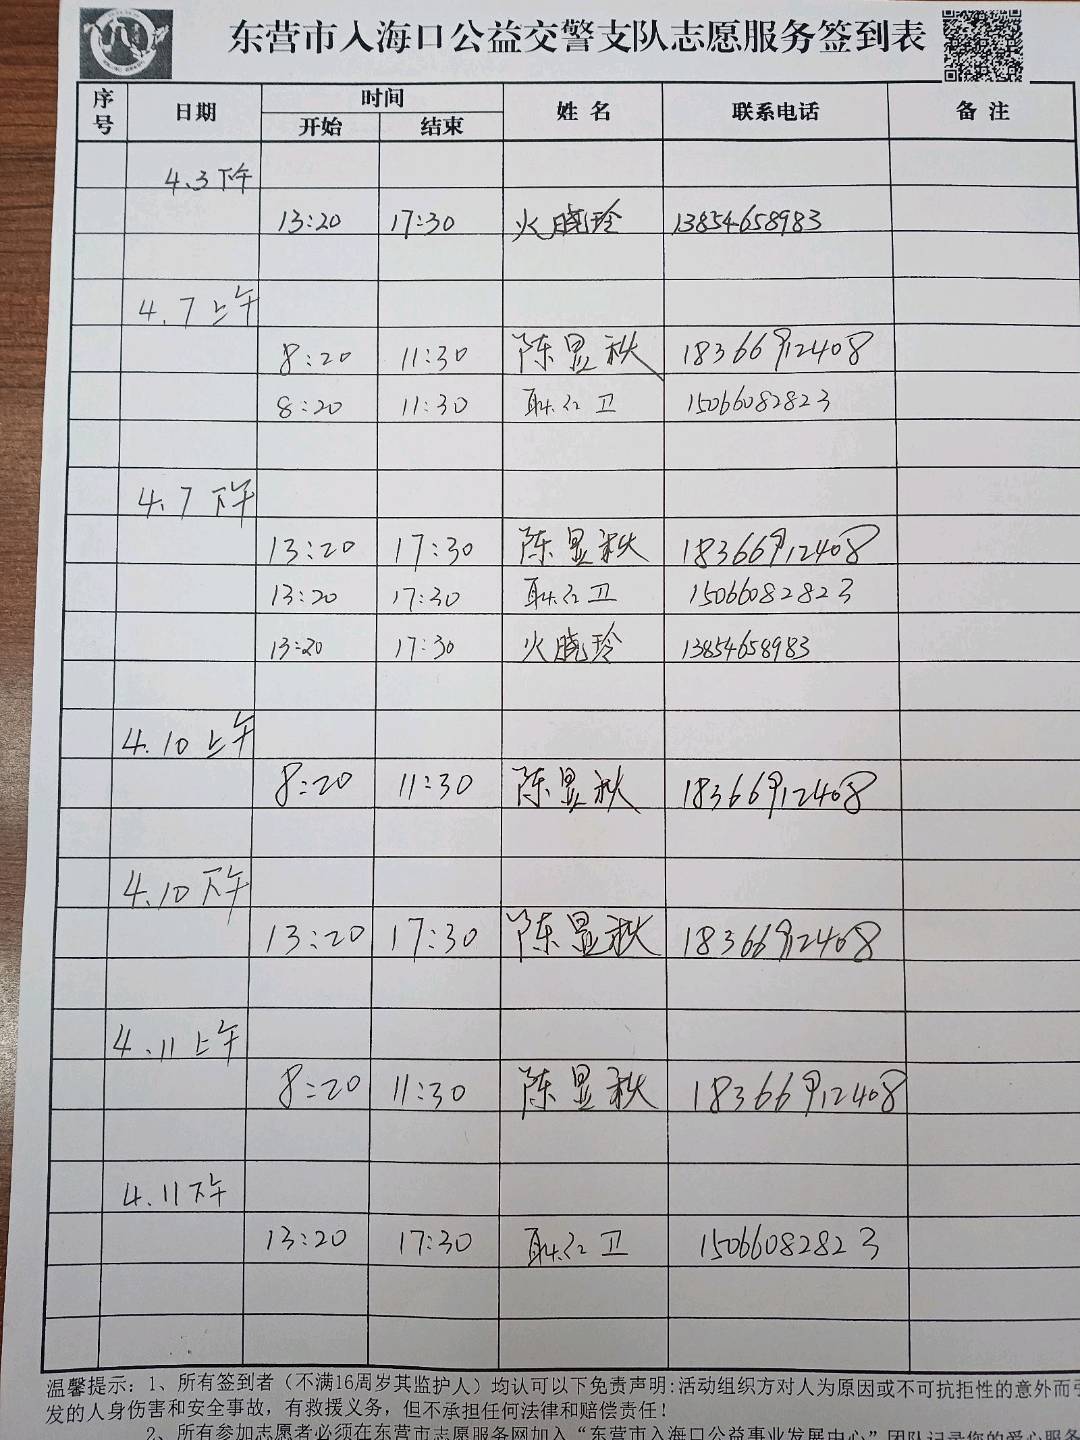 东营市入海口公益交警支队志愿服务签到表
序号 日期 时间 姓名 联系电话 备注
开始 结束
4.3下午
13:20 17:30 火晓玲 13854658983
4.7上午
8:20 11:30 陈显秋 18366912408
8:20 11:30 耿红卫 15066082823
4.7下午
13:20 17:30 陈显秋 18366912408
13:20 17:30 耿红卫 15066082823
13:20 17:30 火晓玲 13854658983
4.10上午
8:20 11:30 陈显秋 18366912408
4.10下午
13:20 17:30 陈显秋 18366912408
4.11上午
8:20 11:30 陈显秋 18366912408
4.11下午
13:20 17:30 耿红卫 15066082823
温馨提示：1、所有签到者（不满16周岁其监护人）均认可以下免责声明:活动组织方对人为原因或不可抗拒性的意外而引
发的人身伤害和安全事故，有救援义务，但不承担任何法律和赔偿责任！
2、所有参加志愿者必须在东营市志愿服务网加入“东营市入海口公益事业发展中心”团队记录您的爱心服务